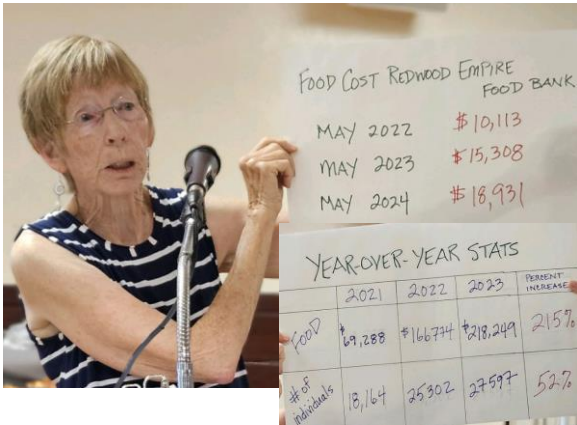 FOOD COST REDWOOD EMPIRE
FOOD BANK
MAY 2022 $10,113
MAY 2023 $15,308
MAY 2024 $18,931
YEAR-OVER-YEAR STATS
2021 2022 2023 PERCENT INCREASE
FOOD $69,288 $166774 $218,249 215%
# of individuals 18,164 25302 27597 52%